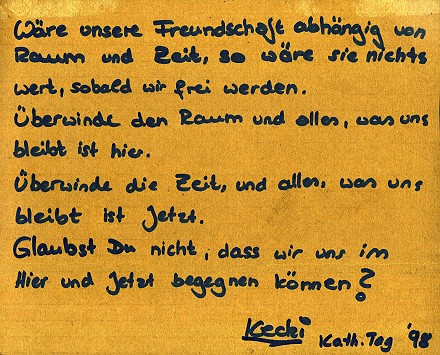 Wäre unsere Freundschaft abhängig von
Raum und Zeit, so wäre sie nichts
wert, sobald wir frei werden.
Überwinde den Raum und alles, was uns
bleibt ist hier.
Überwinde die Zeit, und alles, was uns
bleibt ist Jetzt.
Glaubst Du nicht, dass wir uns im
Hier und Jetzt begegnen können?
Kecki Kath. Tag '98